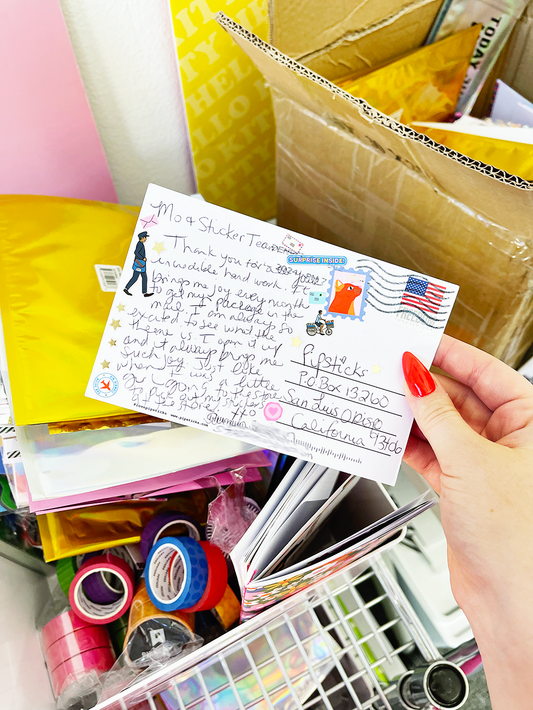 TODAY
HELLO
Mo & Sticker Team
SURPRISE INSIDE!
Thank you for
incredible hard work. It
brings me joy every month
to get my package in the
mail. I am always so
excited to see what the
theme is. I open it up
and it always brings me
such joy. Just like
when I use
a little
Pipsticks
P.O Box 13260
San Luis Obispo
California 93406
www.pipsticks.com